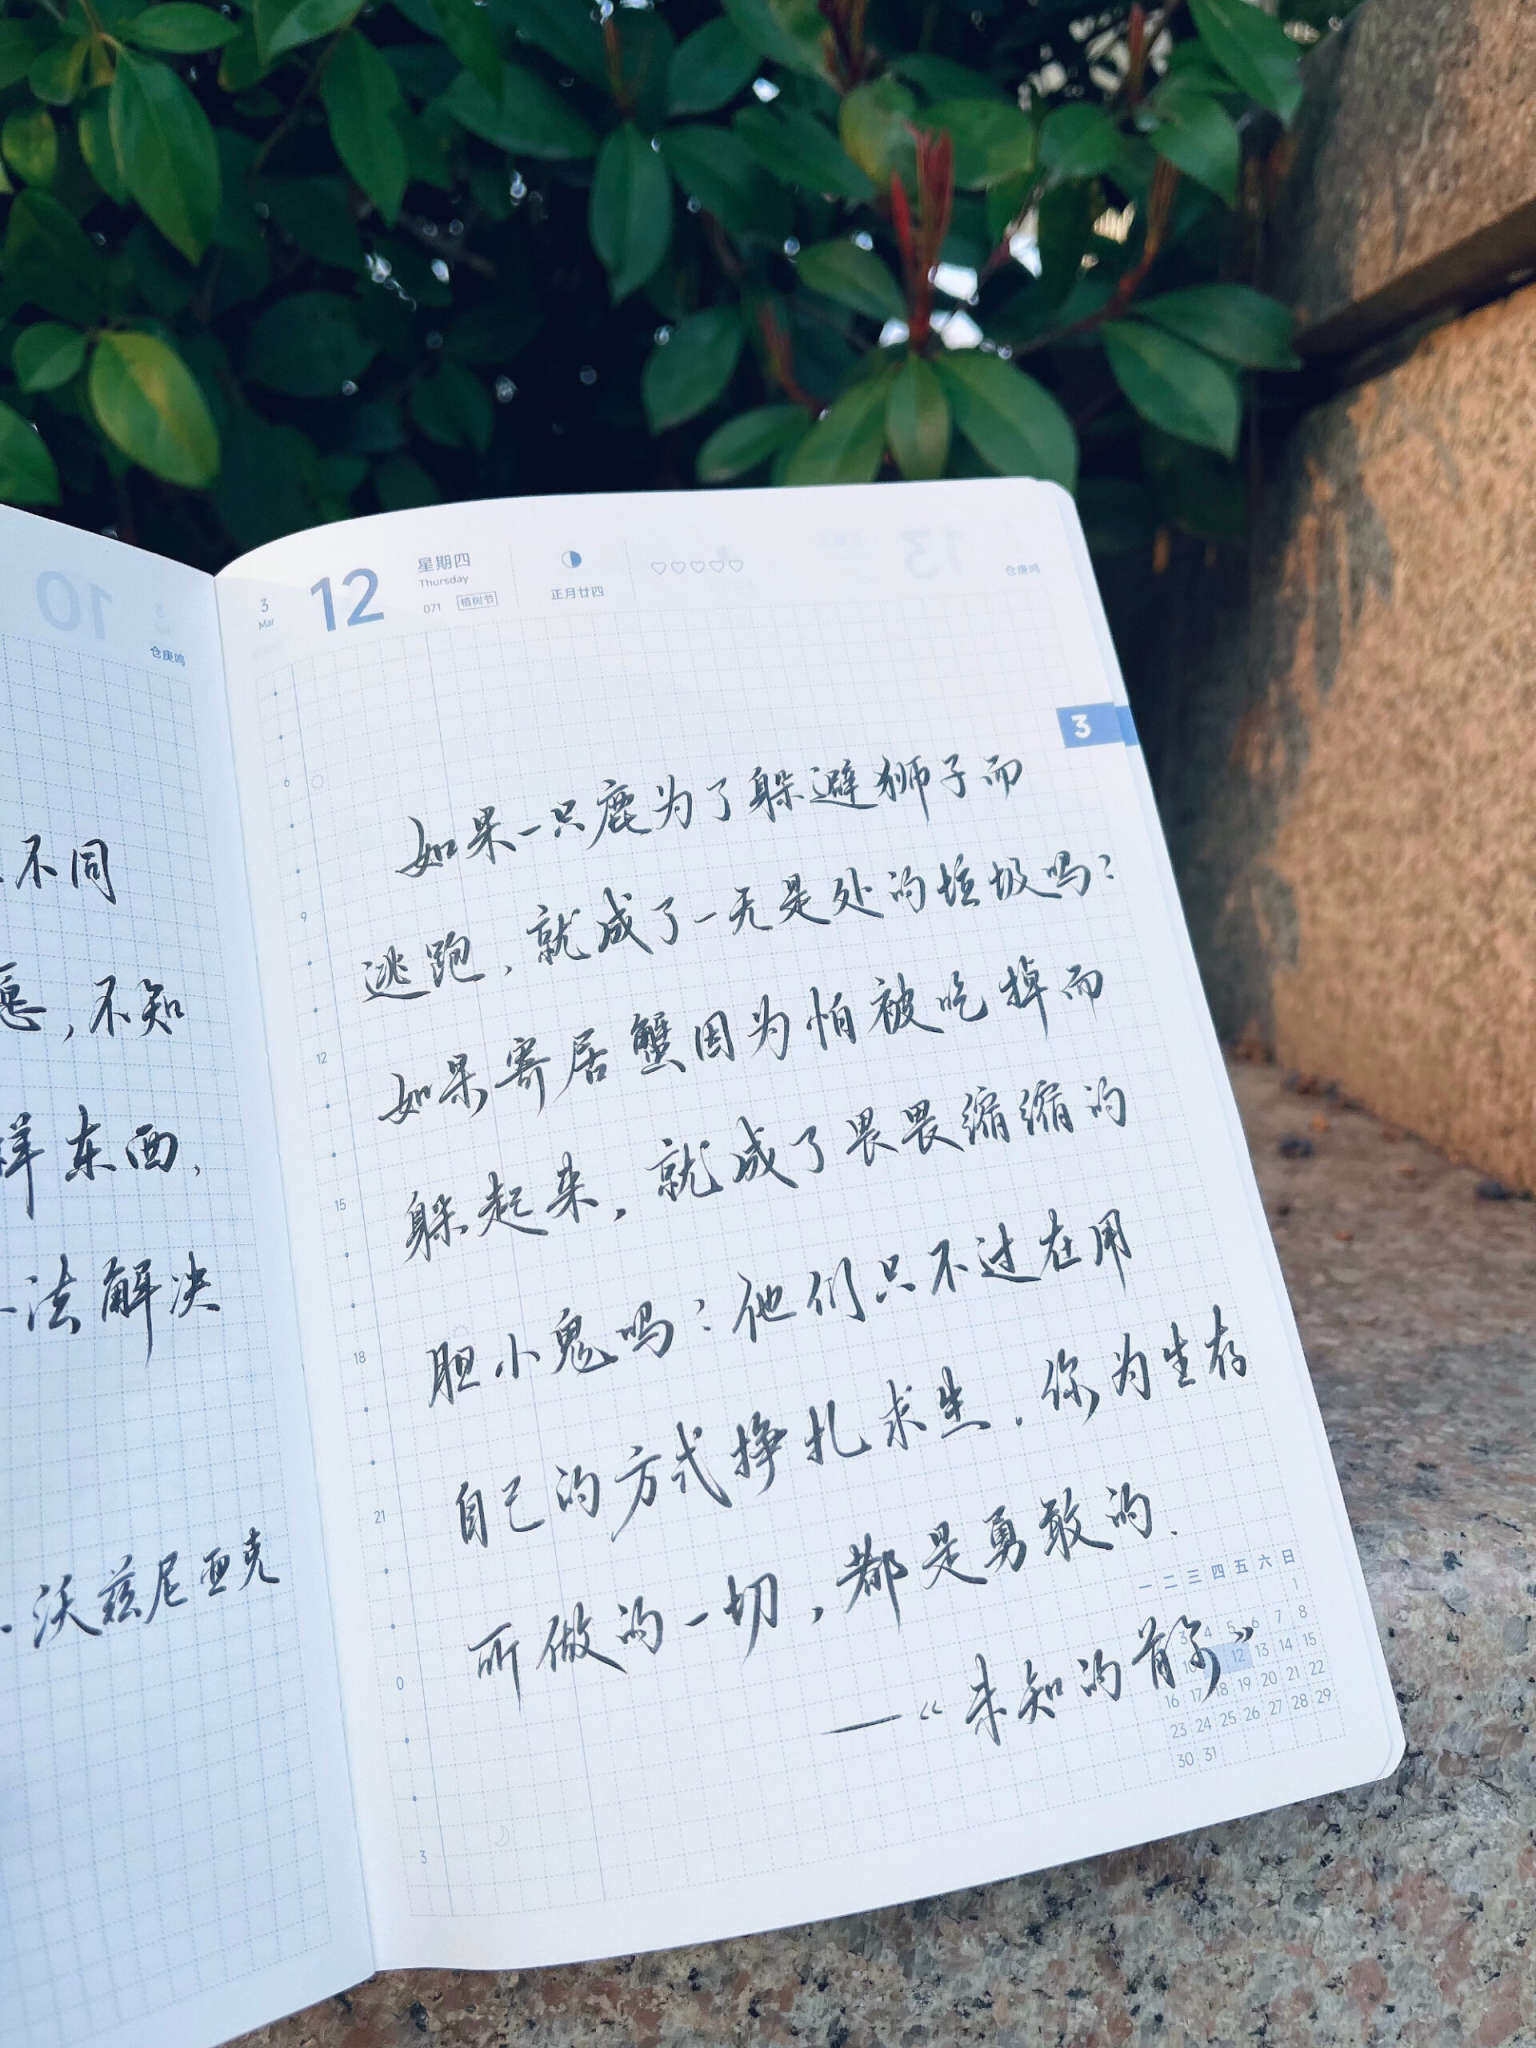 10
仓庚鸣
不同
愿,不知
样东西,
法解决
沃兹尼亚克
3
Mar
12
星期四
Thursday
071 植树节
正月廿四
13
仓庚鸣
3
如果一只鹿为了躲避狮子而
逃跑,就成了一无是处的垃圾吗?
如果寄居蟹因为怕被吃掉而
躲起来,就成了畏畏缩缩的
胆小鬼吗?他们只不过在用
自己的方式挣扎求生.你为生存
所做的一切,都是勇敢的.
——《未知的首尔》
6
9
12
15
18
21
0
3
一 二 三 四 五 六 日
1
3 4 5 6 7 8
10 12 13 14 15
16 17 18 19 20 21 22
23 24 25 26 27 28 29
30 31